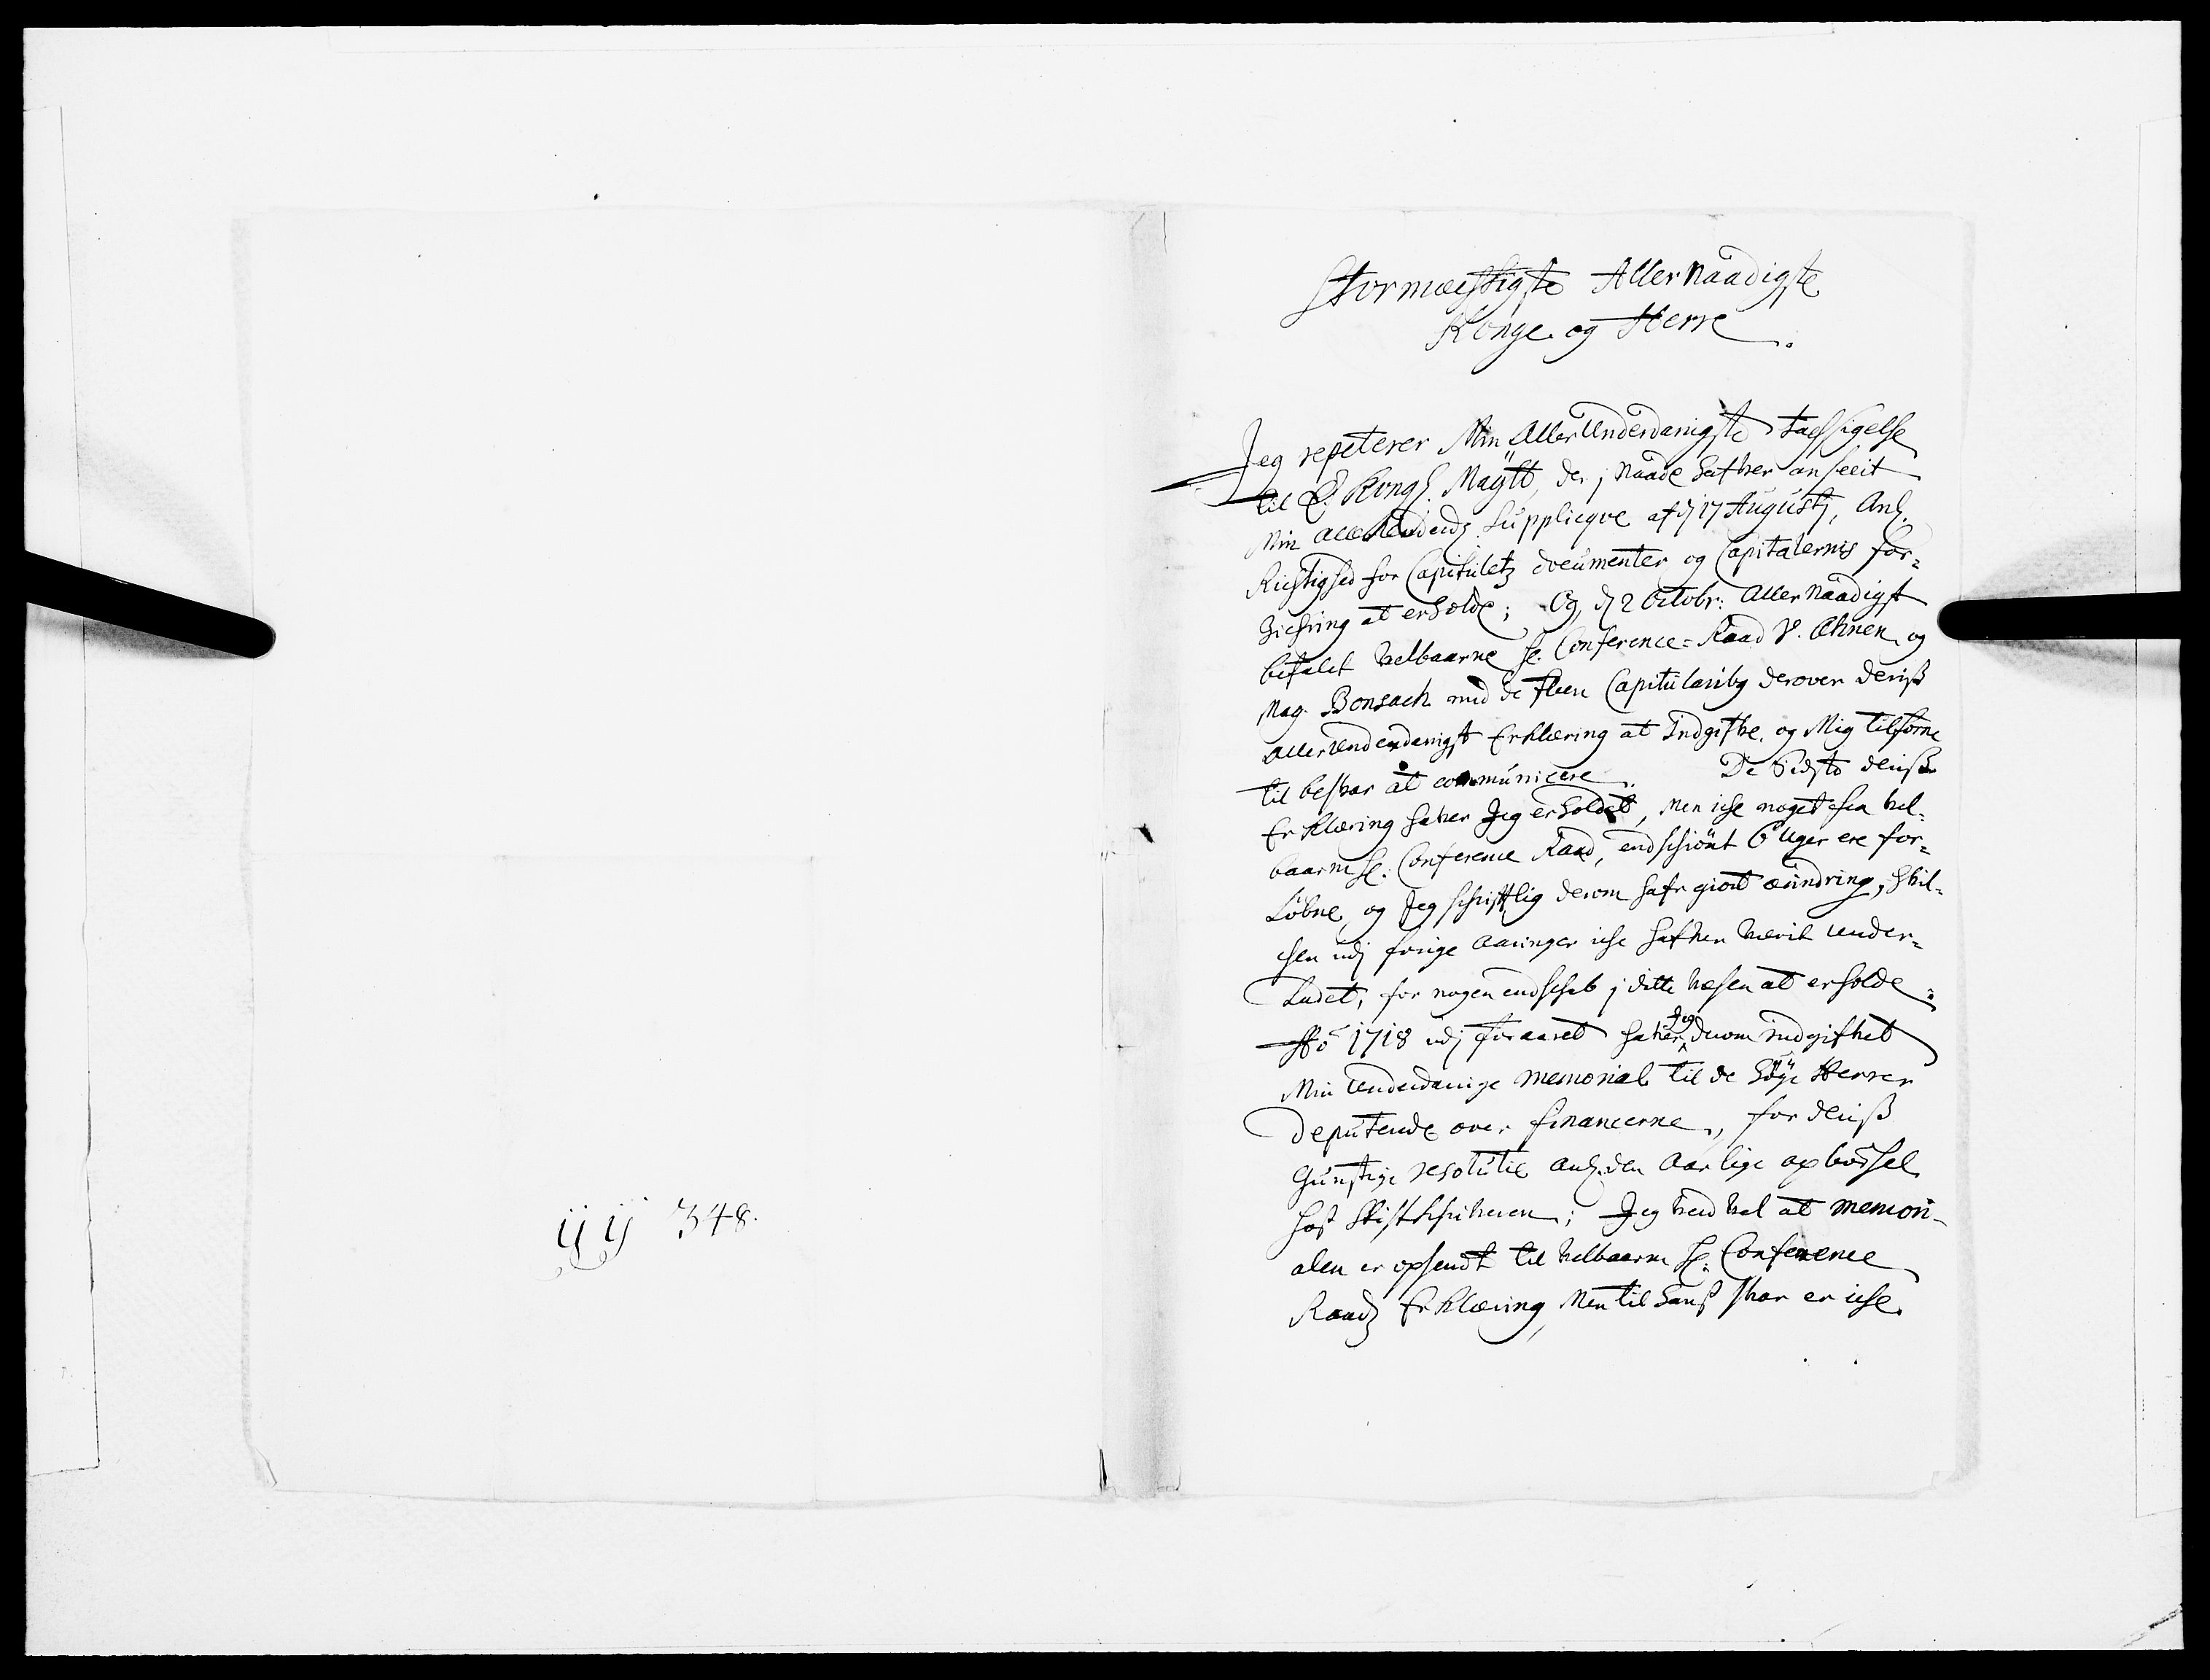 yy 348.
Stormæchtigste AllerNaadigste
Konge og Herre.
Jeg repeterer Min AllerUnderdanigste tachsigelse
til E. Kongl. Maÿtt, der j Naade hafver anseeit
Min allerUnderd: Supplicqve af d 17 Augustj, Anl.
Richtighed for Capitulets documenter og Capitalernis for-
Sichring at erholde; Og d 2 Octobr: AllerNaadigst
befalet Velbaarne Hr. Conference-Raad V. Ohnen og
Mag. Bonsach med de fleer Capitularibg derover deriß
allerUnderdanigst Erklæring at Indgifve, og Mig tilforne
til besvar at communicere. De Sidste deriß
Erklæring hafver Jeg erholdet, Men iche noget fra Vel-
baarne Hr. Conference Raad, endschiönt 6 Uger ere for-
Løbne, og Jeg schriftlig derom hafr giort ærindring, hvil-
chen udj forige Aaringer iche hafver værit under-
Ladet, for nogen endschab j dette Væsen at erholde.
Ao 1718 udj foraaret hafver Jeg derom indgifvet
Min Underdanige memorial til de Höÿe Herrer
Deputerede over financerne, for deriß
Gunstige resolutie anl. den Aarlige opbørsel
hoß Stiftschrifveren; Jeg veed vel at memori-
alen er opsendt til Velbaarne Hr. Conference
Raads Erklæring, Men til hanß svar er iche